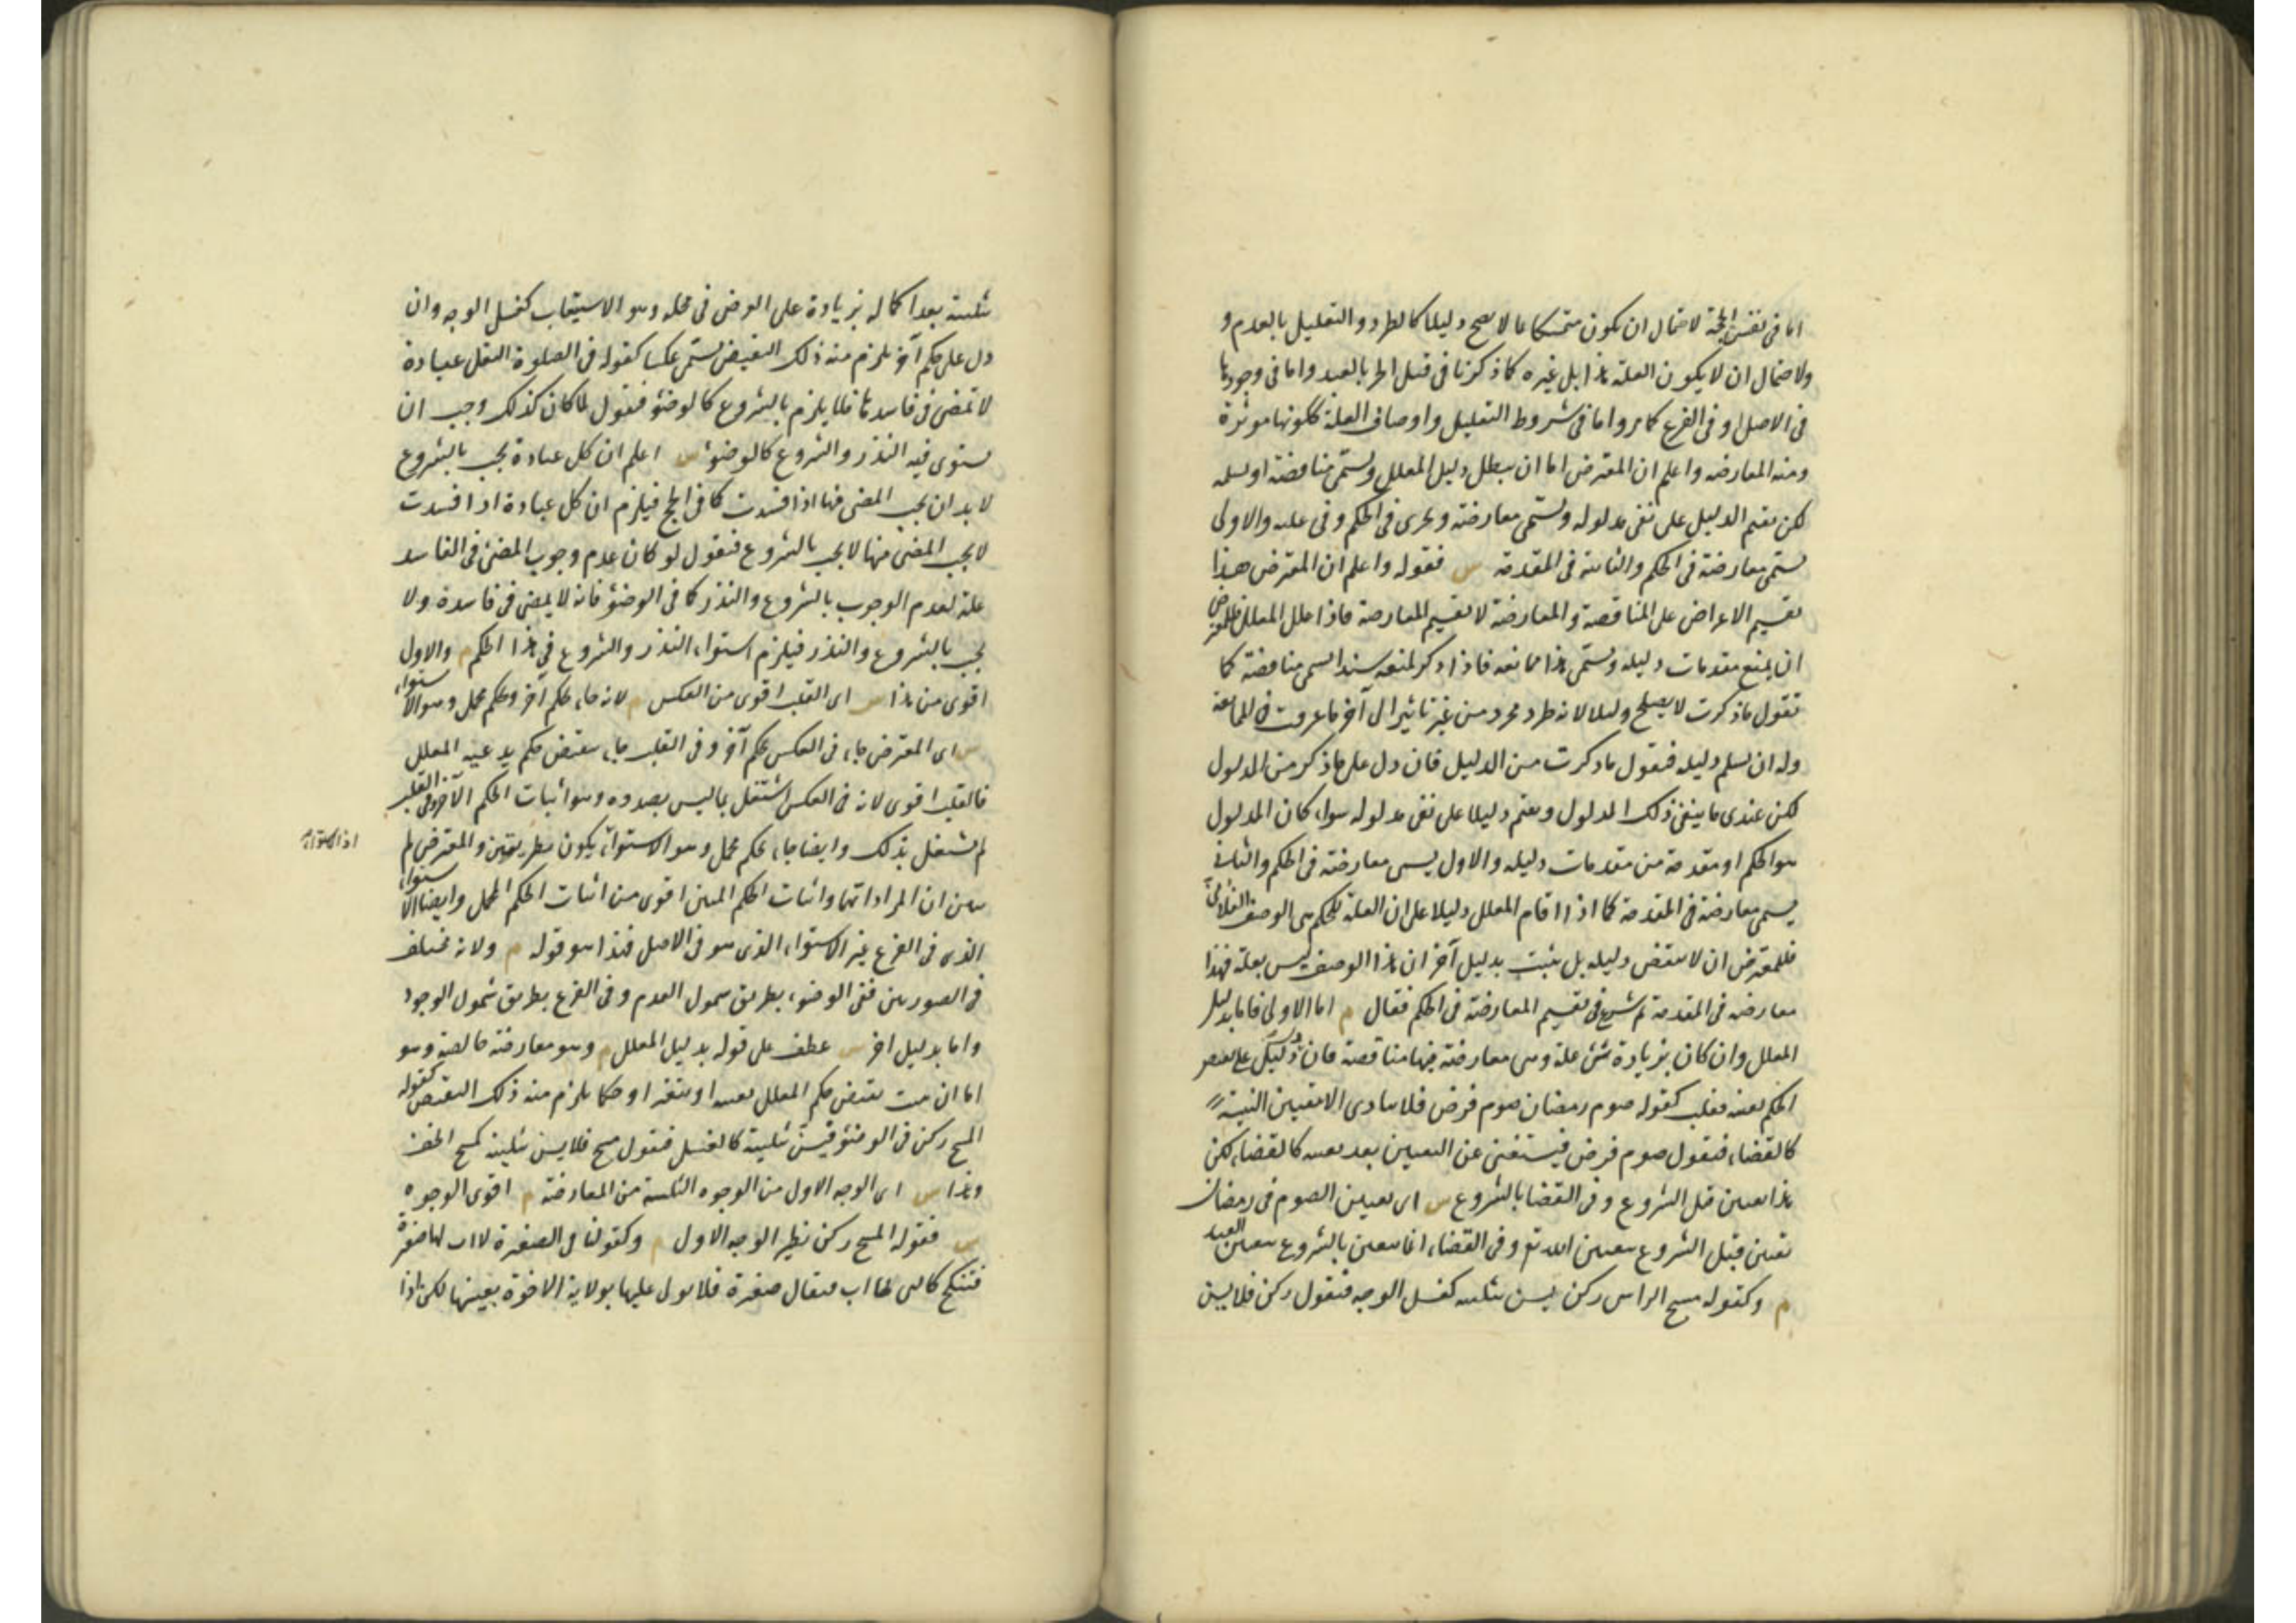 اما فى نفس الحجة لاحتمال ان يكون متمسكا بما لا يصح دليلا كالطرد والتعليل بالعدم و
ولاحتمال ان لا يكون العلة هذا بل غيره كما ذكرنا فى قتل الحر بالعبد واما فى وجودها
فى الاصل او فى الفرع كما مر واما فى شروط التعليل واوصاف العلة ككونها موثرة
ومنه المعارضه واعلم ان المعترض اما ان يبطل دليل المعلل ويسمى مناقضة او يسلمه
لكن يقيم الدليل على نفى مدلوله ويسمى معارضة ويجرى فى الحكم وفى علته والاولى
يسمى معارضة فى الحكم والثانية فى المقدمة س فقوله واعلم ان المعترض هذا
تقسيم الاعراض على المناقضة والمعارضة لا تقسيم المعارضة فاذا علل المعلل فللمعترض
ان يمنع مقدمات دليله ويسمى هذا ممانعه فاذا ذكر لمنعه سندا يسمى مناقضة كما
تقول ما ذكرت لا يصلح دليلا لانه طرد مجرد من غير تاثير الى آخر ما عرفت فى الممانعة
وله ان يسلم دليله فيقول ما ذكرت من الدليل فان دل على ما ذكر من المدلول
لكن عندى ما ينفى ذلك المدلول ويقيم دليلا على نفى مدلوله سواء كان المدلول
هو الحكم او مقدمة من مقدمات دليله والاول يسمى معارضة فى الحكم والثانى
يسمى معارضة فى المقدمة كما اذا اقام المعلل دليلا على ان العلة للحكم هى الوصف الفلانى
فللمعترض ان لا ينقض دليله بل يثبت بدليل آخر ان هذا الوصف ليس بعلة فهذا
معارضه فى المقدمة ثم شرع فى تقسيم المعارضة فى الحكم فقال م اما الاولى فاما بدليل
المعلل وان كان بزيادة شئ علة وهى معارضة فيها مناقضة فان دل على نقيض
الحكم بعينه فقلب كقوله صوم رمضان صوم فرض فلا يتادى الا بتعيين النية
كالقضاء فنقول صوم فرض فيستغنى عن التعيين بعد تعينه كالقضاء لكن
هذا تعين قبل الشروع وفى القضا بالشروع س اى تعيين الصوم فى رمضان
تعين قبل الشروع بتعيين الله تع وفى القضاء انما يتعين بالشروع بتعيين العبد
م وكقوله مسح الراس ركن فيسن تثليثه كغسل الوجه فنقول ركن فلا يسن
تثليثه بعد اكماله بزيادة على الفرض فى محله وهو الاستيعاب كغسل الوجه وان
دل على حكم آخر يلزم منه ذلك النقيض يسمى عكسا كقوله فى الصلوة النفل عبادة
لا تمضى فى فاسدها فلا يلزم بالشروع كالوضؤ فنقول لما كان كذلك وجب ان
يستوى فيه النذر والشروع كالوضؤ س اعلم ان كل عبادة تجب بالشروع
لا بد ان يجب المضى فيها اذا فسدت كما فى الحج فيلزم ان كل عبادة اذا فسدت
لا يجب المضى فيها لا يجب بالشروع فنقول لو كان عدم وجوب المضى فى الفاسد
علة لعدم الوجوب بالشروع والنذر كما فى الوضؤ فانه لا يمضى فى فاسده ولا
يجب بالشروع والنذر فيلزم استواء النذر والشروع فى هذا الحكم م والاول
اقوى من هذا س اى القلب اقوى من العكس م لانه جاء بحكم آخر وبحكم مجمل وهو الاستواء
س اى المعترض جاء فى العكس بحكم آخر وفى القلب جاء بنقيض حكم يدعيه المعلل
فالقلب اقوى لانه فى العكس اشتغل بما ليس بصدده وهو اثبات الحكم الآخر وفى القلب
لم يشتغل بذلك وايضا جاء بحكم مجمل وهو الاستواء يكون بطريقين والمعترض لم
اذ الاستواء
يبين ان المراد ايهما واثبات الحكم المبين اقوى من اثبات الحكم المجمل وايضا الاستواء
الذى فى الفرع غير الاستواء الذى هو فى الاصل فهذا هو قوله م ولانه مختلف
فى الصورتين ففى الوضوء بطريق شمول العدم وفى الفرع بطريق شمول الوجود
واما بدليل اخر س عطف على قوله بدليل المعلل م وهو معارضة خالصة وهو
اما ان يثبت نقيض حكم المعلل بعينه او بتغير او حكما يلزم منه ذلك النقيض كقوله
المسح ركن فى الوضؤ فيسن تثليثه كالغسل فنقول مسح فلا يسن تثليثه كمسح الخف
وهذا س اى الوجه الاول من الوجوه الثلثة من المعارضة م اقوى الوجوه
س فقوله المسح ركن نظير الوجه الاول م وكقولنا فى الصغيرة لا اب لها صغيرة
فتنكح كالتى لها اب فيقال صغيرة فلا يولى عليها بولاية الاخوة بعينها لكن اذا